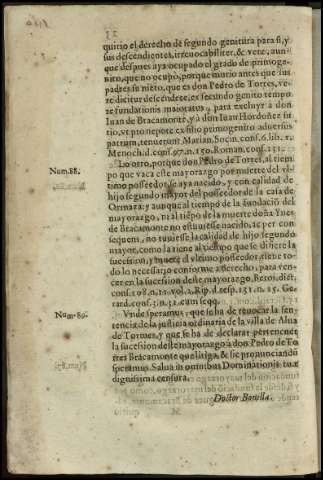 quirio el derecho de segundo genitura para si, y
sus descendientes, irreuocabiliter, & vere, aun-
que despues aya ocupado el grado de primoge-
nito, que no ocupò, porque murio antes que sus
padres su nieto, que es don Pedro de Torres, ve-
re dicitur descendere, ex secundo genito tempo
re fundationis maioratus, para excluyr à don
Iuan de Bracamonte, y à don Iuan Hordoñez su
tio, vt pro nepote ex filio primogenito aduersus
patruum, tenuerunt Marian. Socin. cons. 6. lib. 1.
Menoch. d. cons. 97. n. 150. Roman. cons. 151.
Num. 88. Lo otro, porque don Pedro de Torres, al tiem
po que vaca este mayorazgo por muerte del vl-
timo posseedor, se aya nacido, y con calidad de
hijo segundo mayor del posseedor de la casa de
Ormaza: y aunque al tiempo de la fundaciõ del
mayorazgo, ni al tiẽpo de la muerte doña Ynes
de Bracamonte no estuuiesse nacido, ac per con
sequens, no tuuiesse la calidad de hijo segundo
mayor, como la tiene al tiempo que se difiere la
sucession, y muerte del vltimo posseedor, tiene to
do lo necessario conforme à derecho, para ven-
cer en la sucession deste mayorazgo, Beroi. dist.
cons. 108. n. 12. vol. 2. Rip. d. resp. 151. n. 15. Ge-
rard. cons. 51. n. 32. cum seqq.
Num. 89. Vnde speramus, que se ha de reuocar la sen-
tencia de la justicia ordinaria de la villa de Alua
de Tormes, y que se ha de declarar pertenecer
la sucession deste mayorazgo à don Pedro de To
rres Bracamonte que litiga, & sic pronunciandũ
speramus. Salua in omnibus Dominationis tuæ
dignissima censura.
Doctor Bonilla.